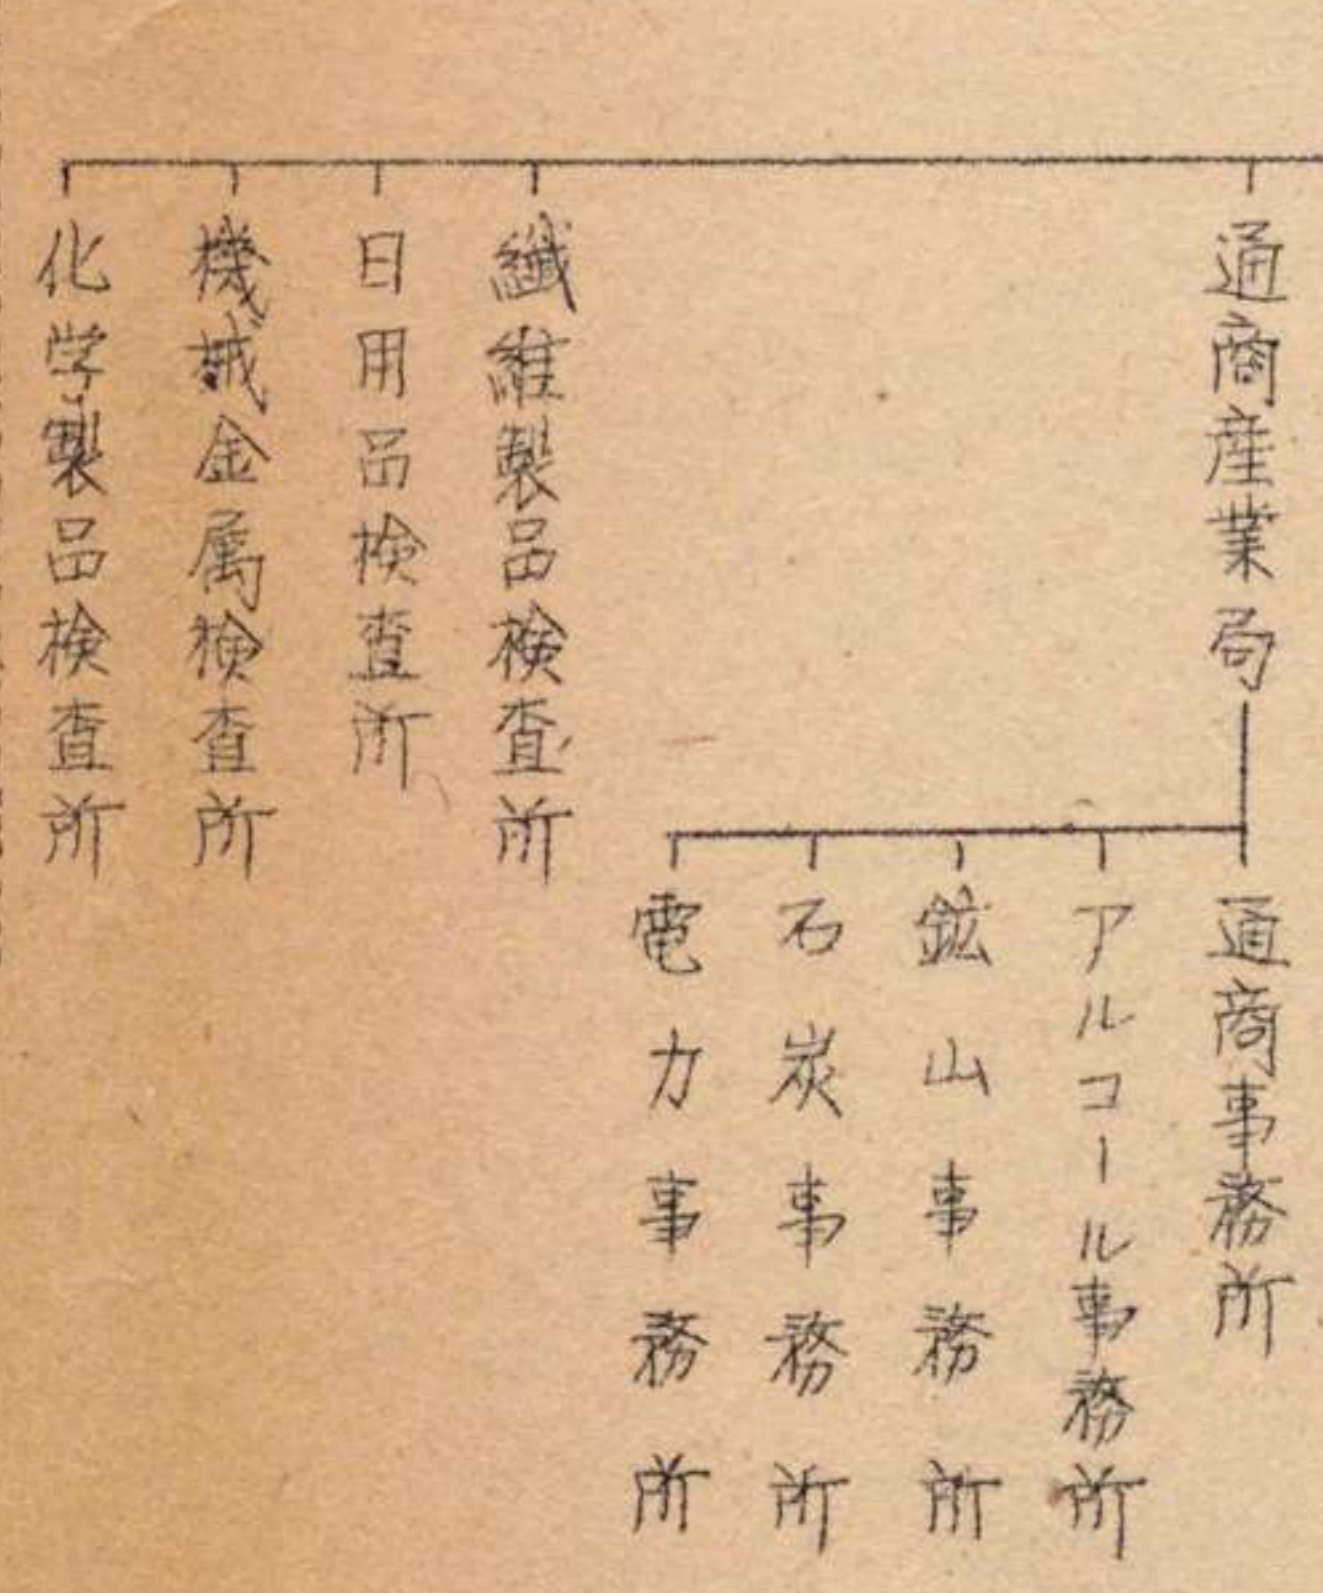 通商産業局
通商事務所
アルコール事務所
鉱山事務所
石炭事務所
電力事務所
繊維製品検査所
日用品検査所
機械金属検査所
化学製品検査所